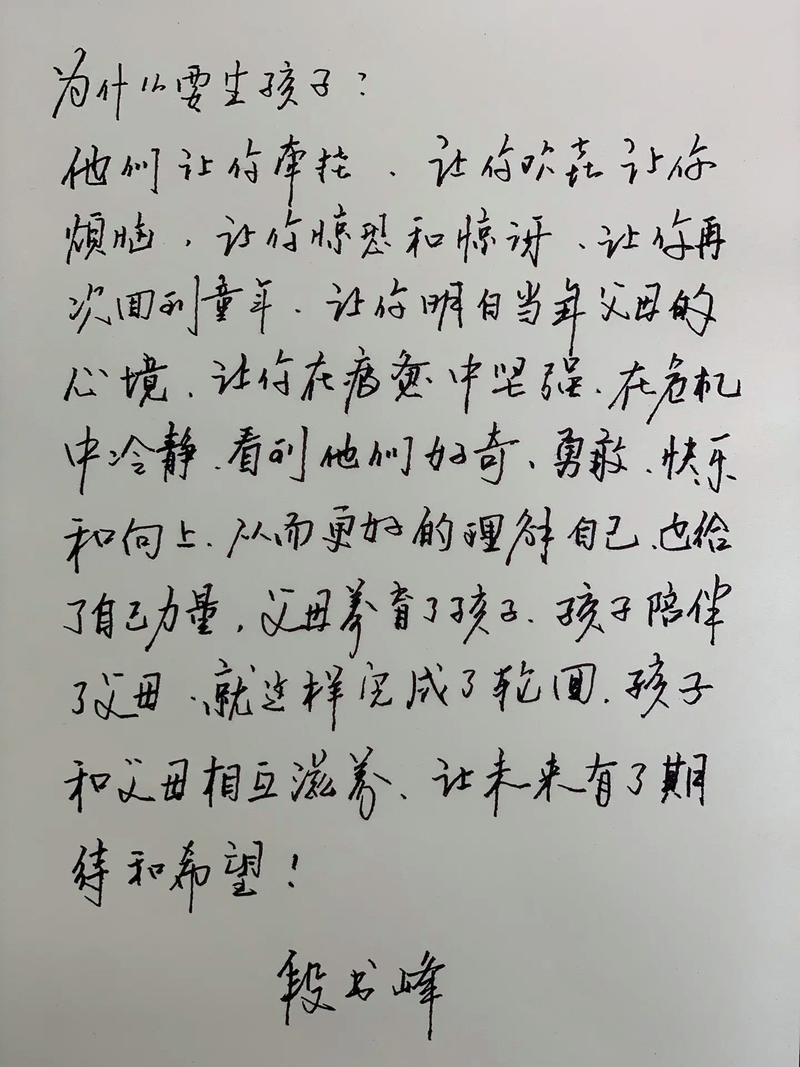 为什么要生孩子?
他们让你牵挂、让你欢喜让你
烦恼,让你惊恐和惊讶、让你再
次回到童年、让你明白当年父母的
心境、让你在疲惫中坚强、在危机
中冷静、看到他们好奇、勇敢、快乐
和向上、从而更好的理解自己、也给
了自己力量,父母养育了孩子、孩子陪伴
了父母、就这样完成了轮回、孩子
和父母相互滋养、让未来有了期
待和希望!
段书峰